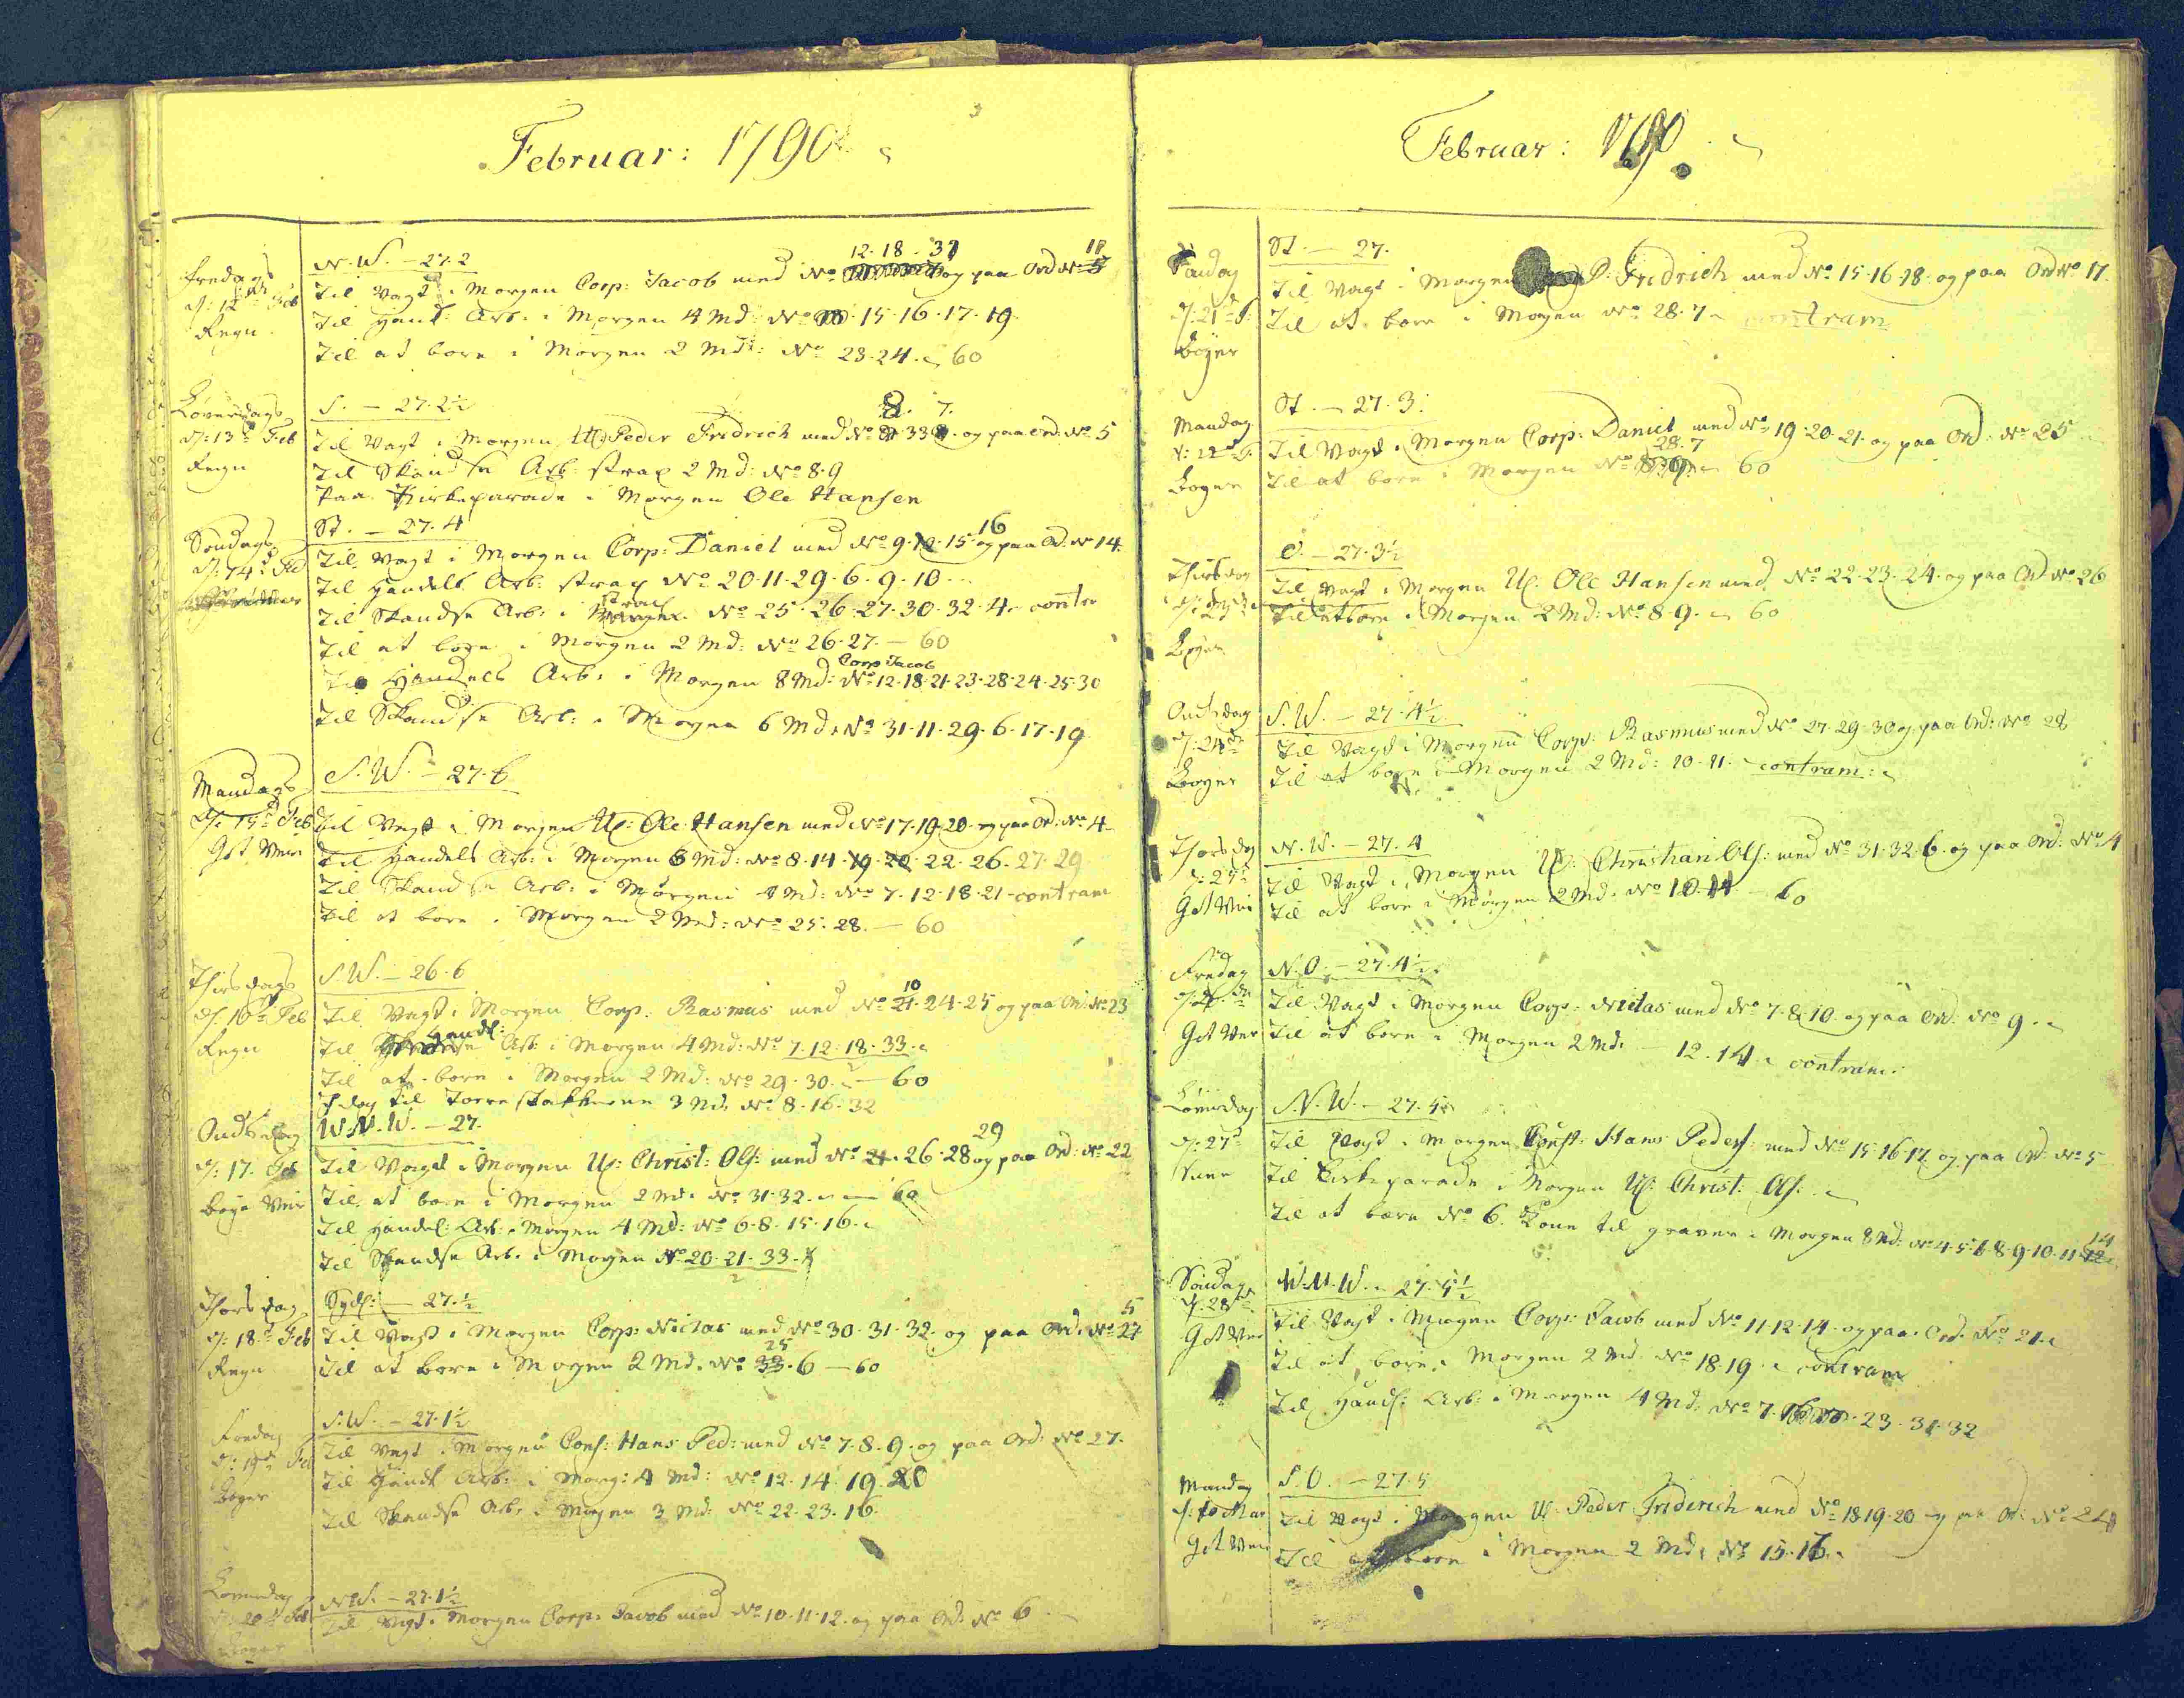 Februar: 1790
Fredags
d: 12te Feb
Regn
N.W. - 27.2
Til Vagt i Morgen Corp: Jacob med No 12. 18. 31 og paa Ord No 11
Til Hand: Arb: i Morgen 4 Md: No 15. 16. 17. 19
Til at bære i Morgen 2 Md: No 23. 24. 60
Løverdags
d: 13de Feb
Regn
S. - 27. 2½
Til Vagt i Morgen U: Peder Fredrich med No 8. 33. 7. og paa Ord: No 5
Til Skandse Arb: strax 2 Md: No 8. 9
Paa Kirkeparade i Morgen Ole Hansen
Søndags
d: 14d Feb
St. - 27. 4
Til Vagt i Morgen Corp: Daniel med No 9. 15. 16 og paa Ord: No 14
Til Handels Arb: strax No 20. 11. 29. 6. 9. 10
Til Skandse Arb: i strax No 25. 26. 27. 30. 32. 4 contra
Til at bære i Morgen 2 Md: No 26. 27. — 60
Til Handels Arb: i Morgen 8 Md: Corp Jacob No 12. 18. 21. 23. 28. 24. 25. 30
Til Skandse Arb: i Morgen 6 Md: No 31. 11. 29. 6. 17. 19
Mandags
d: 15d Feb
Got Veir
S.W. - 27. 6
Til Vagt i Morgen U: Ole Hansen med No 17. 19. 20 og paa Ord: No 4
Til Handels Arb: i Morgen 6 Md: No 8. 14. 19. 20. 22. 26. 27. 29
Til Skandse Arb: i Morgen 4 Md: No 7. 12. 18. 21 - contram
Til at bære i Morgen 2 Md: No 25. 28. — 60
Thirsdags
d: 16de Feb
Regn
S.W. - 26. 6
Til Vagt i Morgen Corp: Rasmus med No 10. 24. 25 og paa Ord: No 23
Til Handl: Arb: i Morgen 4 Md: No 7. 12. 18. 33.
Til at bære i Morgen 2 Md: No 29. 30. — 60
I dag til Torrestakkerne 3 Md: No 8. 16. 32
Ondsdag
d: 17. Feb
Bøge Veir
W.N.W. - 27.
Til Vagt i Morgen U: Christ: Ols: med No 21. 26. 28 29 og paa Ord: No 22
Til at bære i Morgen 2 Md: No 31. 32. — 60
Til Handel: Arb: i Morgen 4 Md: No 6. 8. 15. 16.
Til Skandse Arb: i Morgen No 20. 21. 33.
Thorsdag
d: 18d Feb
Regn
Syd: - 27. ½
Til Vagt i Morgen Corp: Niclas med No 30. 31. 32. og paa Ord: No 5
Til at bære i Morgen 2 Md: No 25. 6 — 60
Fredag
d: 19d Feb
Bøger
S.W. - 27. 1½
Til Vagt i Morgen Cons: Hans Ped: med No 7. 8. 9. og paa Ord: No 27.
Til Handl Arb: i Morg: 4 Md: No 12. 14. 19. 20
Til Skandse Arb: i Morgen 3 Md: No 22. 23. 16.
Løverdag
d: 20d Feb
Bøger
N.W. - 27. 1½
Til Vagt i Morgen Corp: Jacob med No 10. 11. 12. og paa Ord: No 6
Februar: 1790.
Søndag
d: 21d F:
Bøger
St. - 27.
Til Vagt i Morgen P. Fredrich med No 15. 16. 18. og paa Ord No 17.
Til at bære i Morgen No 28. 7. contram
Mandag
d: 22d F.
Bøger
St. - 27. 3.
Til Vagt i Morgen Corp: Daniel med No 19. 20. 21. og paa Ord: No 25
Til at bære i Morgen No 28. 7 60
Thirsdag
d: 23d
Bøger
S. - 27. 3½
Til Vagt i Morgen U: Ole Hansen med No 22. 23. 24. og paa Ord No 26
Til at bære i Morgen 2 Md: No 8. 9. 60
Ondsdag
d: 24de
Bøger
S.W. - 27. 4½
Til Vagt i Morgen Corp: Rasmus med No 27. 29. 30 og paa Ord: No 28
Til at bære i Morgen 2 Md: 10. 11. contram:
Thorsdag
d: 25d
Got Veir
N.W. - 27. 4
Til Vagt i Morgen U: Christian Ols: med No 31. 32. 6. og paa Ord: No 4
Til at bære i Morgen 2 Md: No 10. 11. — 60
Fredag
d: 26de
Got Veir
N.O. - 27. 4½
Til Vagt i Morgen Corp: Niclas med No 7. 8. 10. og paa Ord: No 9.
Til at bære i Morgen 2 Md: — 12. 14. contram:
Løverdag
d: 27d
N.W. - 27. 5
Til Vagt i Morgen Const: Hans Peders: med No 15. 16. 17. og paa Ord: No 5
Til Kirkeparade i Morgen U: Christ. Ols:
Til at bære No 6. Kone til graven i Morgen 8 Md: No 4. 5. 6. 8. 9. 10. 11. 14
Søndag
d: 28de
Got Veir
W.N.W. - 27. 5½
Til Vagt i Morgen Corp: Jacob med No 11. 12. 14. og paa Ord: No 21.
Til at bære i Morgen 2 Md: No 18. 19. contram
Til Handl: Arb: i Morgen 4 Md: No 7. 23. 31. 32
Mandag
d: 1o Mar
Got Veir
S.O. - 27. 5
Til Vagt i Morgen U: Peder Friderich med No 18. 19. 20 og paa Ord: No 24
Til at bære i Morgen 2 Md: No 15. 16.